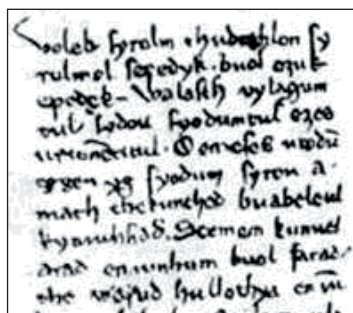 Volek syrolm thudothlon sy
rolmol sepedyk. buol ozuk
epedek. Walasth vylagum
tul sydou fyodumtul ezes
urumemtuul. O en eses urodū
eggen yg fyodum syrou a-
niath thekunched buabeleul
kyniuhhad. Scemem kunuel
arad en iunhum buol farad
the werud hullothya en